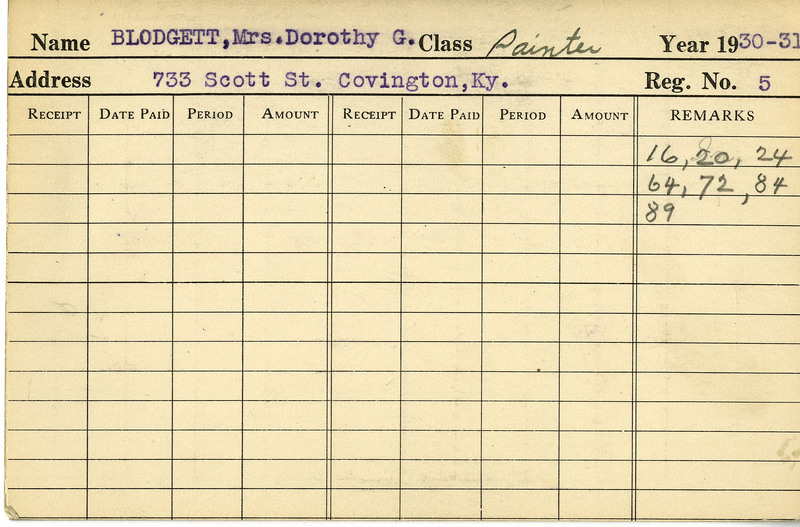 Name BLODGETT,Mrs.Dorothy G. Class Painter Year 1930-31
Address 733 Scott St. Covington,Ky. Reg. No. 5
RECEIPT DATE PAID PERIOD AMOUNT RECEIPT DATE PAID PERIOD AMOUNT REMARKS
16, 20, 24
64, 72, 84
89